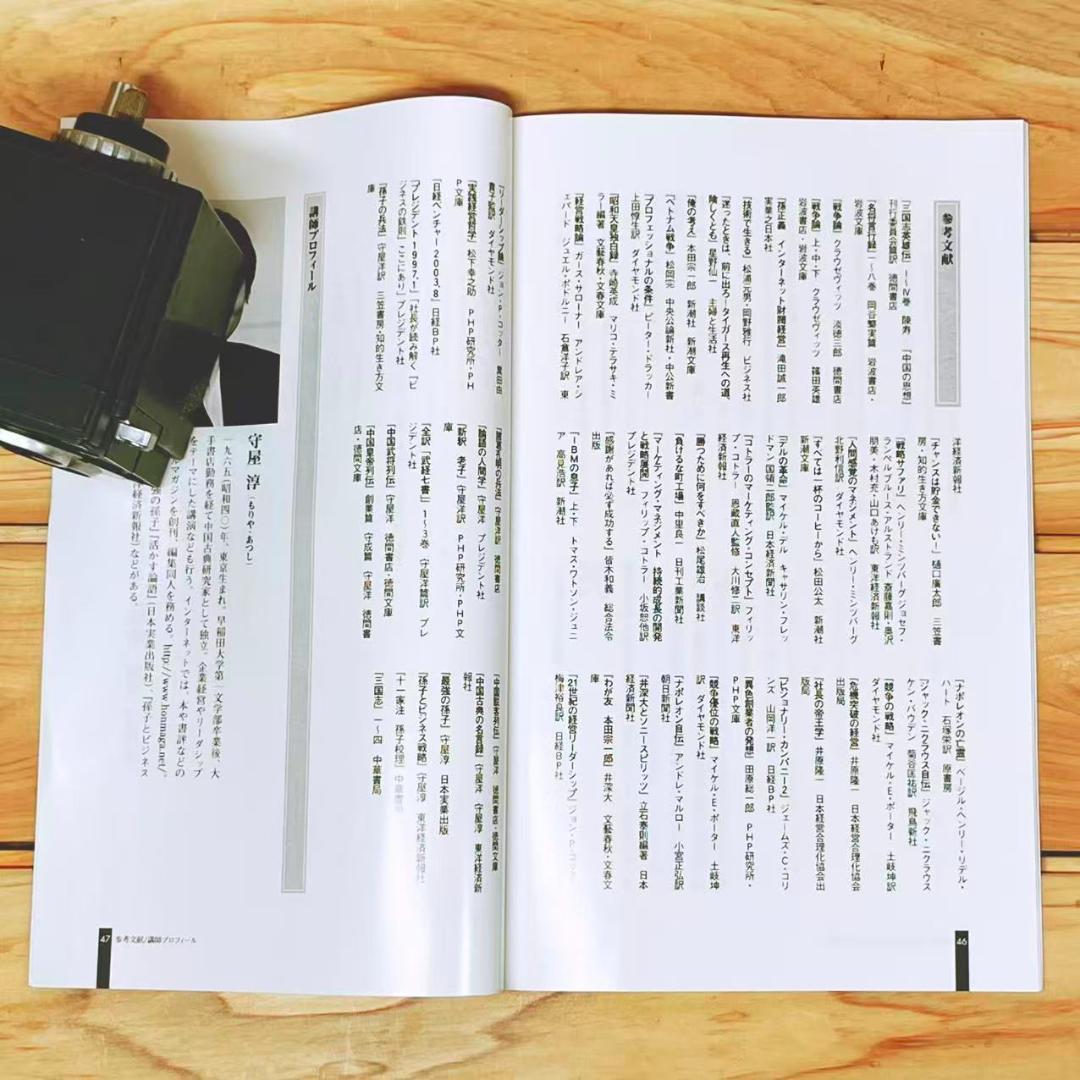 参考文献
『三国志英雄伝』Ⅰ～Ⅳ巻 陳寿 「中国の思想」
刊行委員会篇訳 徳間書店
『名将言行録』一～八巻 岡谷繁実篇 岩波書店・
岩波文庫
『戦争論』クラウゼヴィッツ 淡徳三郎 徳間書店
『戦争論』上・中・下 クラウゼヴィッツ 篠田英雄
岩波書店・岩波文庫
『孫正義 インターネット財閥経営』滝田誠一郎
実業之日本社
『技術で生きる』松浦元男・岡野雅行 ビジネス社
『迷ったときは、前に出ろ―タイガース再生への道、
険しくとも』星野仙一 主婦と生活社
『俺の考え』本田宗一郎 新潮社 新潮文庫
『ベトナム戦争』松岡完 中央公論新社・中公新書
『プロフェッショナルの条件』ピーター・ドラッカー
上田惇生訳 ダイヤモンド社
『昭和天皇独白録』寺崎英成 マリコ・テラサキ・ミ
ラー編著 文藝春秋・文春文庫
『経営戦略論』ガース・サローナー アンドレア・シ
ェパード ジュエル・ポドルニー 石倉洋子訳 東
洋経済新報社
『チャンスは貯金できない!』樋口廣太郎 三笠書
房・知的生き方文庫
『戦略サファリ』ヘンリー・ミンツバーグ ジョセフ・
ランペル ブルース・アルストランド 斎藤嘉則・奥沢
朋美・木村充・山口あけも訳 東洋経済新報社
『人間感覚のマネジメント』ヘンリー・ミンツバーグ
北野利信訳 ダイヤモンド社
『すべては一杯のコーヒーから』松田公太 新潮社
新潮文庫
『デルの革命』マイケル・デル キャサリン・フレッ
ドマン 國領二郎監訳 日本経済新聞社
『コトラーのマーケティング・コンセプト』フィリッ
プ・コトラー 恩藏直人監修 大川修二訳 東洋
経済新報社
『勝つために何をすべきか』松尾雄治 講談社
『負けるな町工場』中里良一 日刊工業新聞社
『マーケティング・マネジメント 持続的成長の開発
と戦略展開』フィリップ・コトラー 小坂恕他訳
プレジデント社
『感謝があれば必ず成功する』皆木和義 総合法令
出版
『IBMの息子』上・下 トマス・ワトソン・ジュニ
ア 高見浩訳 新潮社
『ナポレオンの亡霊』ベージル・ヘンリー・リデル・
ハート 石塚栄訳 原書房
『ジャック・ニクラウス自伝』ジャック・ニクラウス
ケン・バウデン 菊谷匡祐訳 飛鳥新社
『競争の戦略』マイケル・E・ポーター 土岐坤訳
ダイヤモンド社
『危機突破の経営』井原隆一 日本経営合理化協会
出版局
『社長の帝王学』井原隆一 日本経営合理化協会出
版局
『ビジョナリー・カンパニー2』ジェームズ・C・コリ
ンズ 山岡洋一訳 日経BP社
『異色創業者の発想』田原総一郎 PHP研究所・
PHP文庫
『競争優位の戦略』マイケル・E・ポーター 土岐坤
訳 ダイヤモンド社
『ナポレオン自伝』アンドレ・マルロー 小宮正弘訳
朝日新聞社
『井深大とソニースピリッツ』立石泰則編著 日本
経済新聞社
『わが友 本田宗一郎』井深大 文藝春秋・文春文
庫
『21世紀の経営リーダーシップ』ジョン・P・コッター
梅津裕良訳 日経BP社
46
『リーダーシップ論』ジョン・P・コッター 黒田由
貴子監訳 ダイヤモンド社
『実践経営哲学』松下幸之助 PHP研究所・PH
P文庫
『日経ベンチャー2003,8』日経BP社
『プレジデント1997,1』「社長が読み解く『ビ
ジネスの鉄則』ここにあり」プレジデント社
『孫子の兵法』守屋洋訳 三笠書房・知的生き方文
庫
『諸葛孔明の兵法』守屋洋訳 徳間書店
『論語の人間学』守屋洋 プレジデント社
『新釈 老子』守屋洋訳 PHP研究所・PHP文
庫
『全訳「武経七書」』1～3巻 守屋洋篇訳 プレ
ジデント社
『中国武将列伝』守屋洋 徳間書店・徳間文庫
『中国皇帝列伝』創業篇 守成篇 守屋洋 徳間書
店・徳間文庫
『中国説客列伝』守屋洋 徳間書店・徳間文庫
『中国古典の名言録』守屋洋 守屋淳 東洋経済新
報社
『最強の孫子』守屋淳 日本実業出版
『孫子とビジネス戦略』守屋淳 東洋経済新報社
『十一家注 孫子校理』中華書局
『三国志』一～四 中華書局
講師プロフィール
守屋 淳(もりや・あつし)
一九六五(昭和四〇)年、東京生まれ。早稲田大学第一文学部卒業後、大
手書店勤務を経て中国古典研究家として独立。企業経営やリーダシップ
をテーマにした講演なども行う。インターネットでは、本や書評などの
マガジンを創刊、編集同人を務める。http://www.honmaga.net/
強の孫子』『活かす論語』(日本実業出版社)、『孫子とビジネス
経済新報社)などがある。
47 参考文献/講師プロフィール